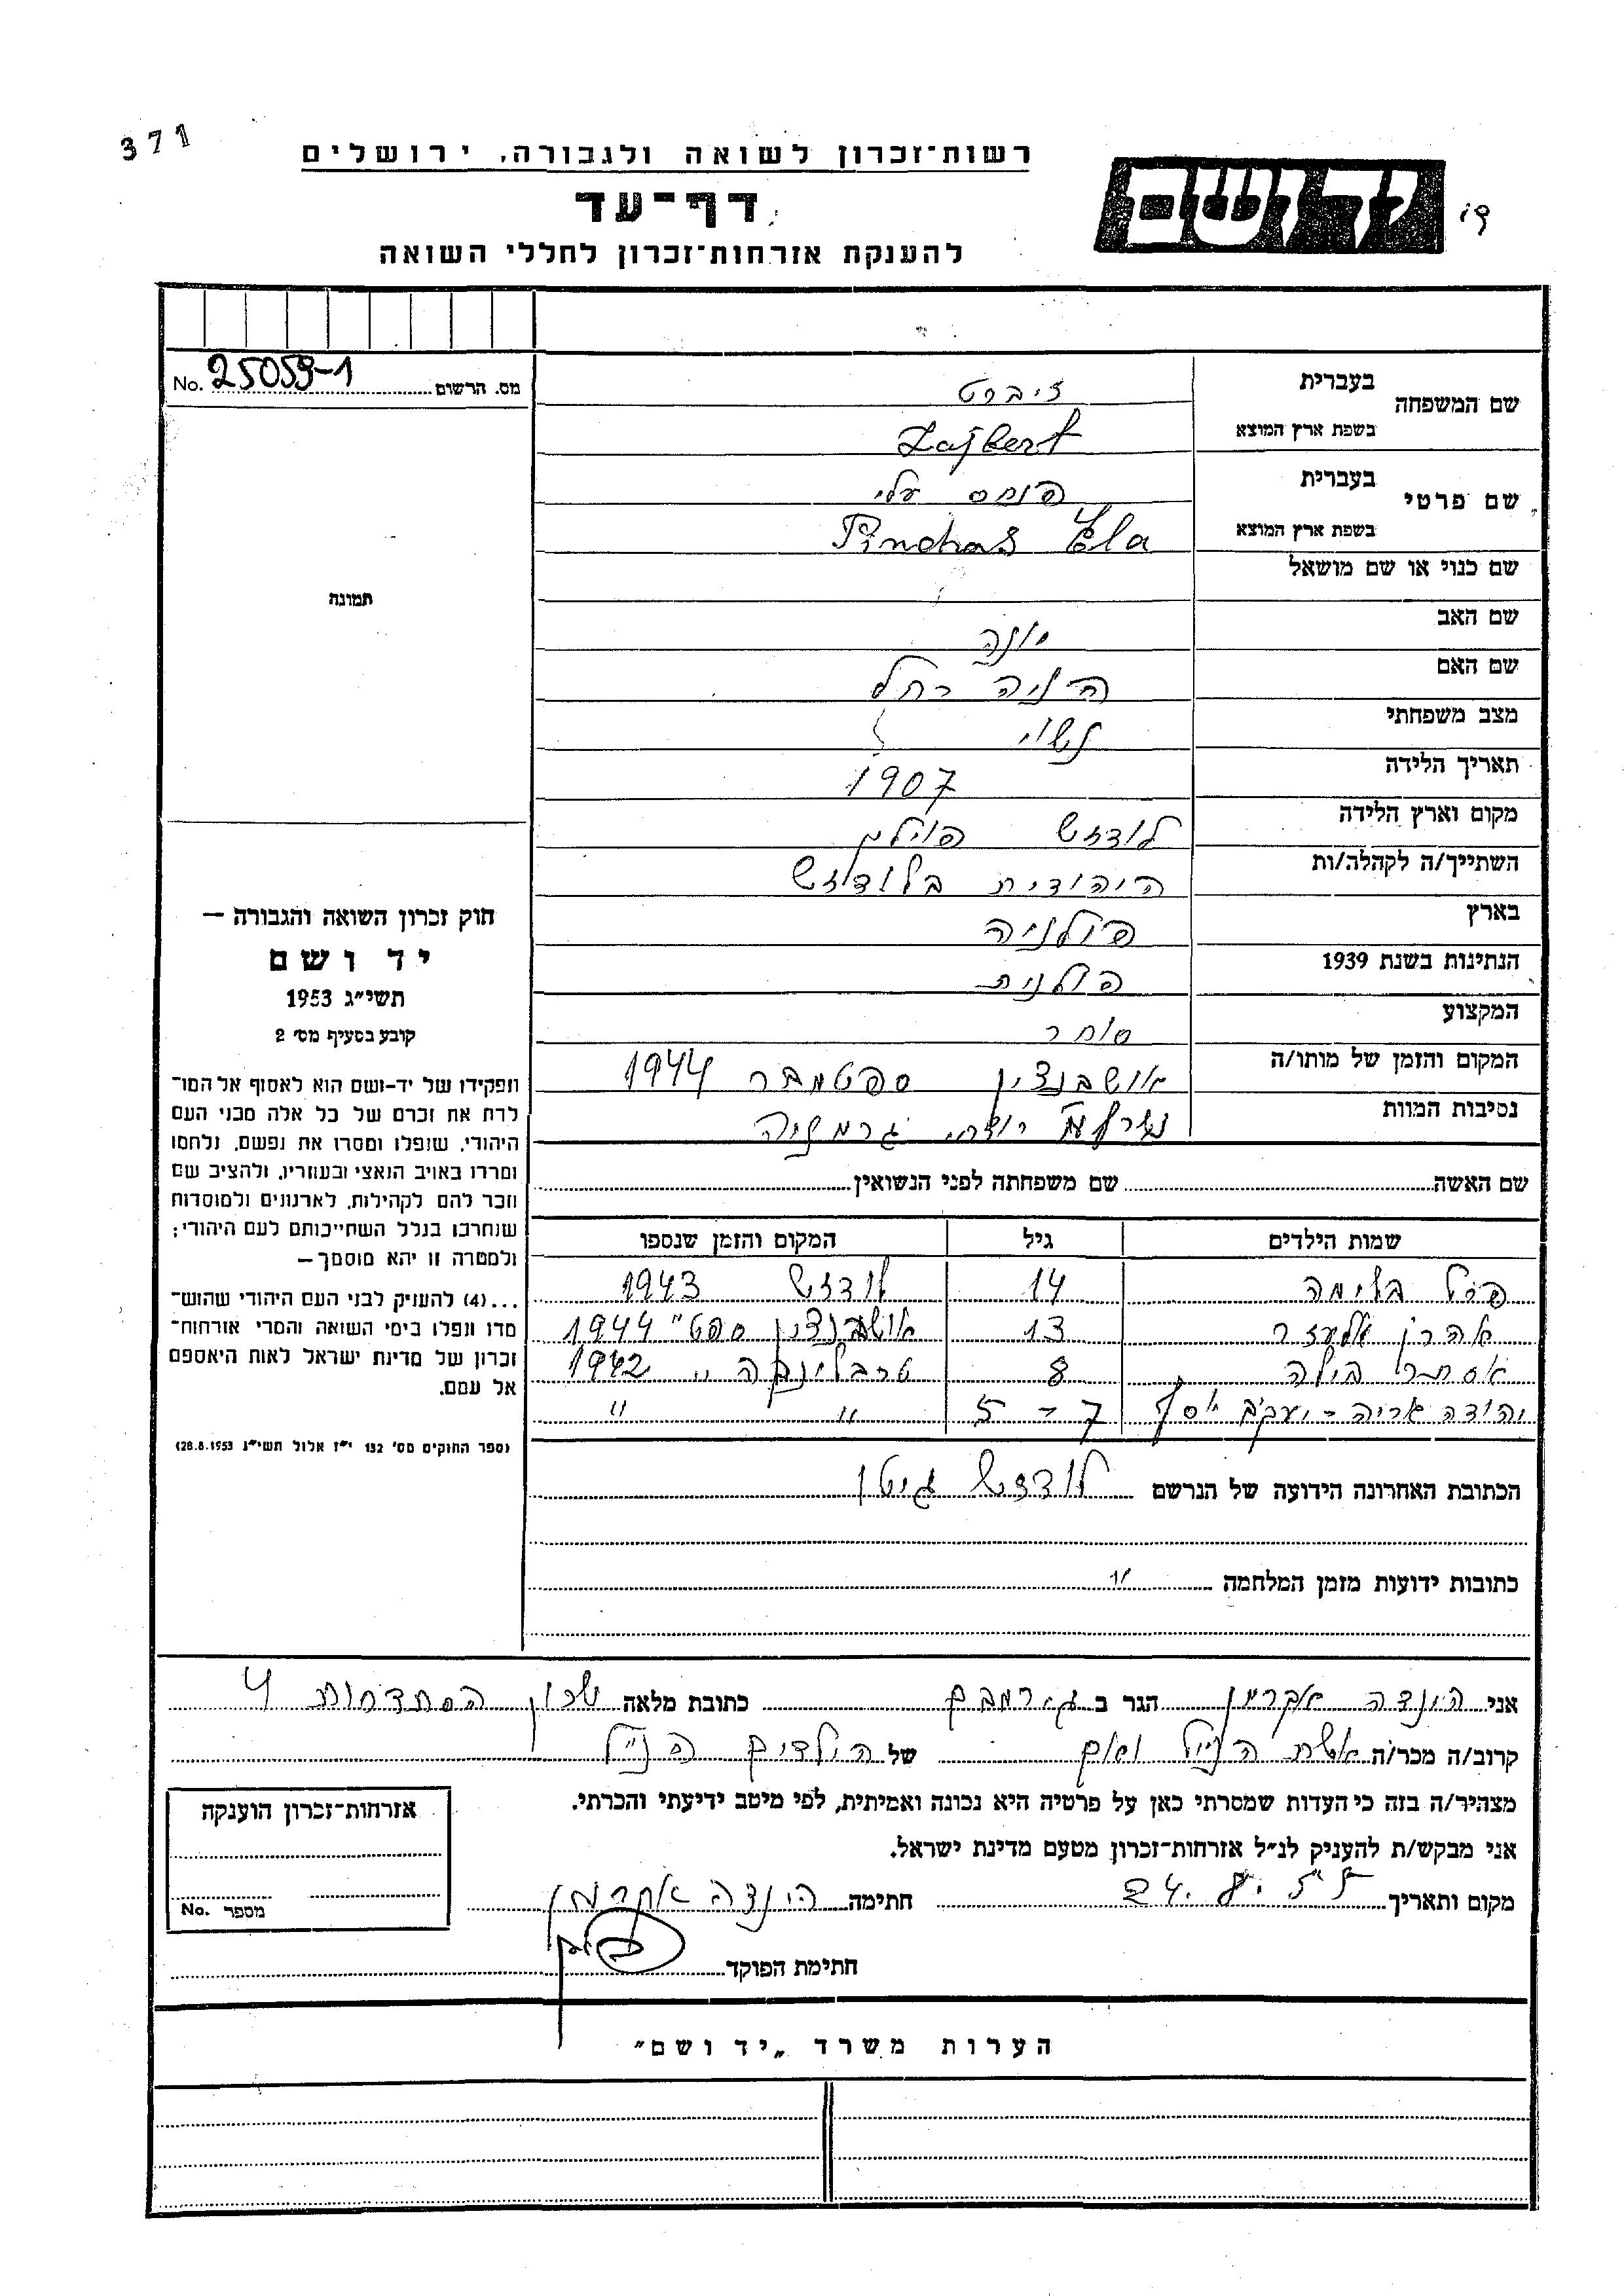 371
רשות־זכרון לשואה ולגבורה, ירושלים
דף־עד
להענקת אזרחות־זכרון לחללי השואה
יד ושם
מס. הרשום No. 25059-1
שם המשפחה
בעברית זיברט
בשפת ארץ המוצא Zajbert
שם פרטי
בעברית פנחס עלי
בשפת ארץ המוצא Pinchas Ela
שם כנוי או שם מושאל
שם האב יונה
שם האם רחל
מצב משפחתי נשוי
תאריך הלידה 1907
מקום וארץ הלידה לודזש פוילן
השתייך/ה לקהלה/ות היהודית בלודזש
בארץ פולניה
הנתינות בשנת 1939 פולנית
המקצוע סוחר
המקום והזמן של מותו/ה אושבנצין ספטמבר 1944
נסיבות המוות גרמניה
תמונה
חוק זכרון השואה והגבורה —
יד ושם
תשי״ג 1953
קובע בסעיף מס׳ 2
תפקידו של יד-ושם הוא לאסוף אל המו־
לדת את זכרם של כל אלה מבני העם
היהודי, שנפלו ומסרו את נפשם, נלחמו
ומרדו באויב הנאצי ובעוזריו, ולהציב שם
וזכר להם לקהילות, לארגונים ולמוסדות
שנחרבו בגלל השתייכותם לעם היהודי;
ולמטרה זו יהא מוסמך —
...(4) להעניק לבני העם היהודי שהוש־
מדו ונפלו בימי השואה והמרי אזרחות־
זכרון של מדינת ישראל לאות היאספם
אל עמם.
(ספר החוקים מס׳ 132 י״ז אלול תשי״ג 28.8.1953)
שם האשה שם משפחתה לפני הנשואין
שמות הילדים גיל המקום והזמן שנספו
בלימה 14 לודזש 1943
אהרן אלעזר 13 אושבנצין ספט״ 1944
אסתר בילה 8 טרבלינקה " 1942
יהודה אריה - יעקב יוסף 7 - 5 " "
הכתובת האחרונה הידועה של הנרשם לודזש גיטו
כתובות ידועות מזמן המלחמה "
אני הינדה אקרמן הגר ב כתובת מלאה שכון הסתדרות 4
קרוב/ה מכר/ה אשת הנ״ל ואם של הילדים הנ״ל
מצהיר/ה בזה כי העדות שמסרתי כאן על פרטיה היא נכונה ואמיתית, לפי מיטב ידיעתי והכרתי.
אני מבקש/ת להעניק לנ״ל אזרחות־זכרון מטעם מדינת ישראל.
מקום ותאריך חתימה הינדה אקרמן
חתימת הפוקד
אזרחות־זכרון הוענקה
מספר No.
הערות משרד „יד ושם״